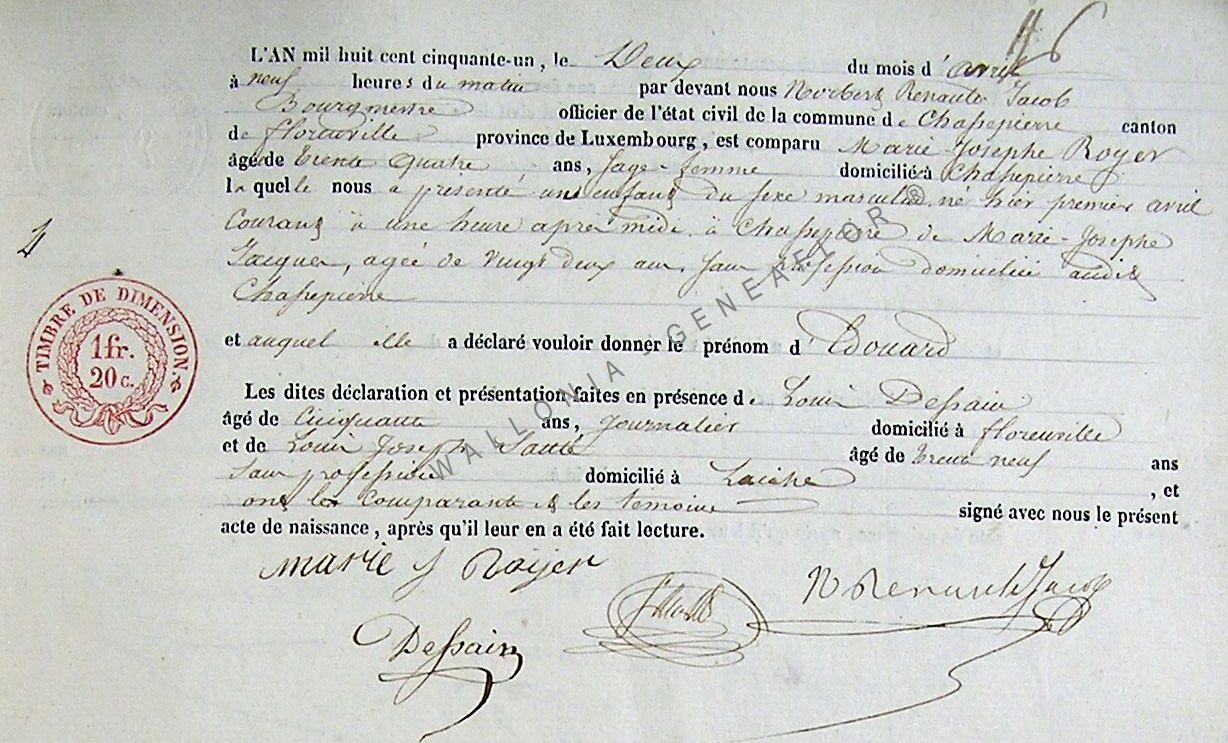 L'AN mil huit cent cinquante-un, le Deux du mois d'avril
à neuf heures du matin par devant nous Norbert Renauld Jacob
Bourgmestre officier de l'état civil de la commune de Chassepierre canton
de florenville province de Luxembourg, est comparu Marie Josephe Royer
âgé de trente quatre ans, sage-femme domicilié à Chassepierre
laquelle nous a présenté un enfant du sexe masculin né hier premier avril
courant à une heure après midi à Chassepierre de Marie-Josephe
Jacques, agée de vingt deux ans, sans profession domiciliée audit
Chassepierre
et auquel elle a déclaré vouloir donner le prénom d'Edouard
Les dites déclaration et présentation faites en présence de Louis Dessain
âgé de Cinquante ans, journalier domicilié à florenville
et de Louis Joseph âgé de trente neuf ans
sans profession domicilié à Laiche, et
ont la comparante & les témoins signé avec nous le présent
acte de naissance, après qu'il leur en a été fait lecture.
marie J Roijer
N Renauld Jacob
Dessain
4
TIMBRE DE DIMENSION
1 fr.
20 c.
WALLONIA GENEALOR ®